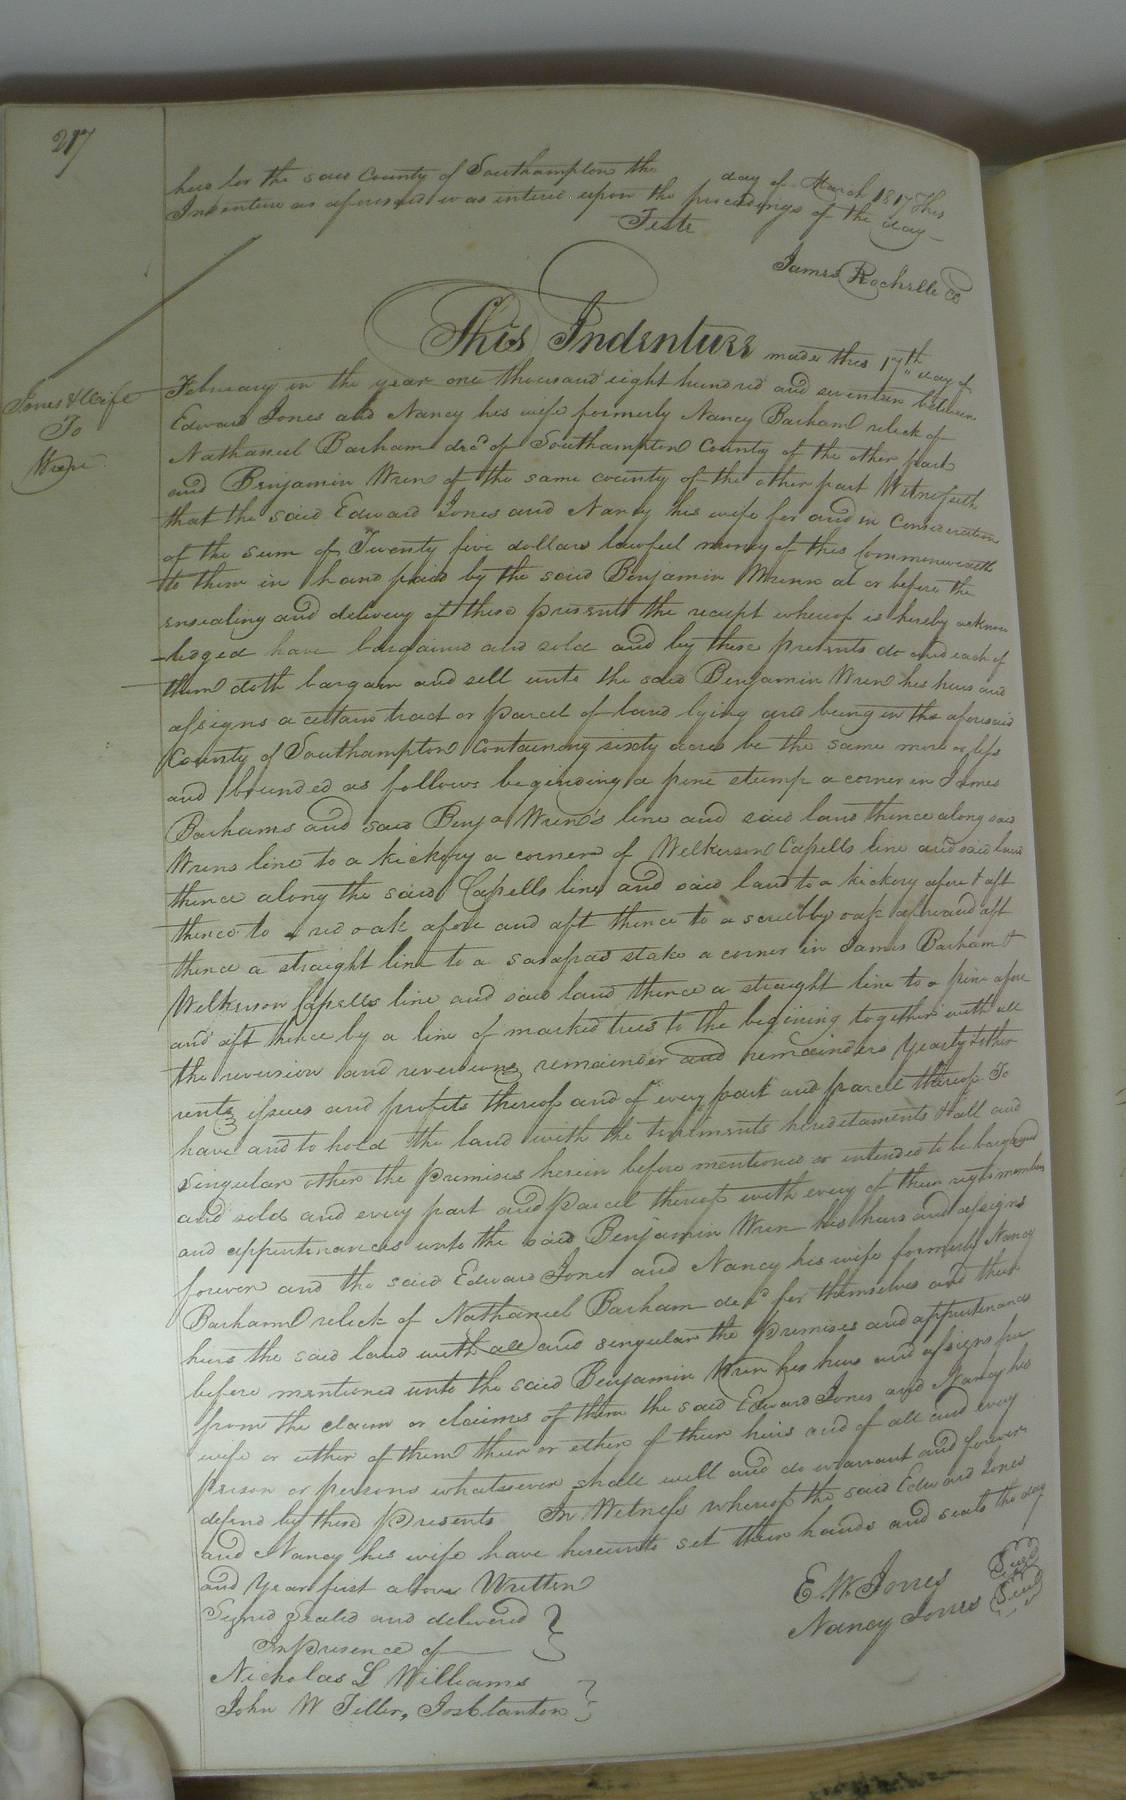 217
held for the said County of Southampton the day of March 1817 This
Indenture as aforesaid was entered upon the proceedings of the day—
Teste
James Rochelle CC
This Indenture made this 17th day of
Jones & Wife
To
Wren
February in the year one thousand eight hundred and seventeen between
Edward Jones and Nancy his wife formerly Nancy Barham relick of
Nathaniel Barham decd of Southampton County of the other part
and Benjamin Wren of the same county of the other part Witnesseth
that the said Edward Jones and Nancy his wife for and in Consideration
of the sum of Twenty five dollars lawfull money of this Commonwealth
to them in hand paid by the said Benjamin Wrenn at or before the
ensealing and delivery of these presents the receipt whereof is hereby acknow
-ledged have bargained and sold and by these presents do and each of
them doth bargain and sell unto the said Benjamin Wren his heirs and
assigns a certain tract or parcel of land lying and being in the aforesaid
County of Southampton Containing sixty acres be the same more or less
and bounded as follows begining a pine stump a corner in James
Barhams and said Benja Wren's line and said land thence along said
Wrens line to a hickory a corner of Welkerson Capells line and said land
thence along the said Capells line and said land to a hickory afore & aft
thence to a red oak afore and aft thence to a scrubby oak afore and aft
thence a straight line to a sasafras stake a corner in James Barham &
Welkerson Capells line and said land thence a straight line to a pine afore
and aft thence by a line of marked trees to the begining together with all
the reversion and reversions remainder and remainders Yearly & other
rents issues and profits thereof and of every part and parcel thereof To
have and to hold the land with the tenements hereditaments & all and
singular other the premises herein before mentioned or intended to be bargained
and sold and every part and parcel thereof with every of their rights members
and appurtenances unto the said Benjamin Wren his heirs and assigns
forever and the said Edward Jones and Nancy his wife formerly Nancy
Barham relick of Nathaniel Barham decd for themselves and their
heirs the said land with all and singular the premises and appurtenances
before mentioned unto the said Benjamin Wren his heirs and assigns free
from the claim or claims of them the said Edward Jones and Nancy his
wife or either of them their or either of their heirs and of all and every
person or persons whatsoever shall will and do warrant and forever
defend by these Presents In Witness whereof the said Edward Jones
and Nancy his wife have hereunto set their hands and seals the day
and Year first above Written
E. W. Jones Seal
Signd Sealed and delivered
Nancy Jones Seal
In presence of
Nicholas L Williams
John W Teller, Jos Clanton